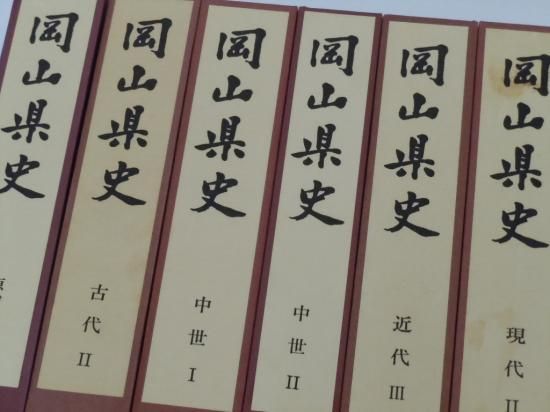 岡山県史
岡山県史
古代II
岡山県史
中世I
岡山県史
中世II
岡山県史
近代III
岡山県史
現代II